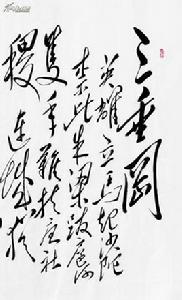 三垂岡
英雄立马起沙陀
奈此朱梁跋扈何
隻手難扶唐社
稷連城犹